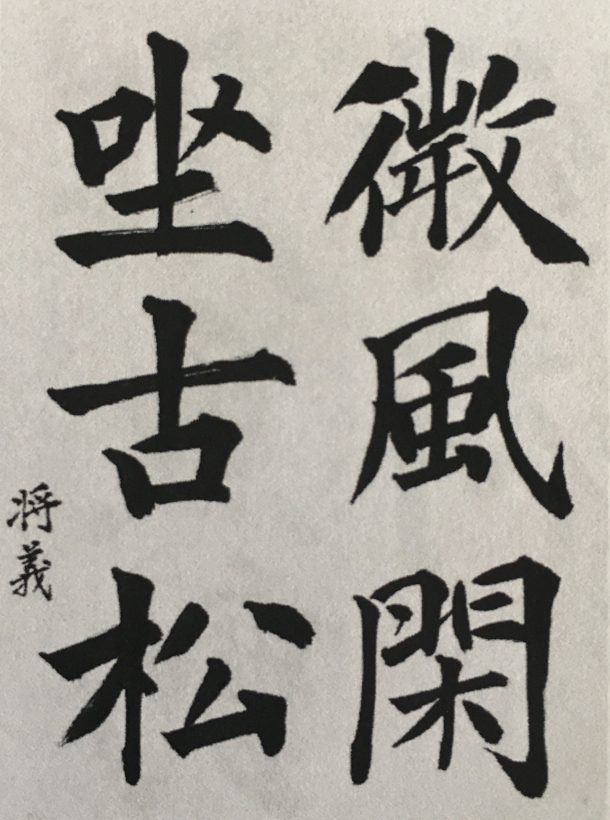 微風閑
坐古松
将義